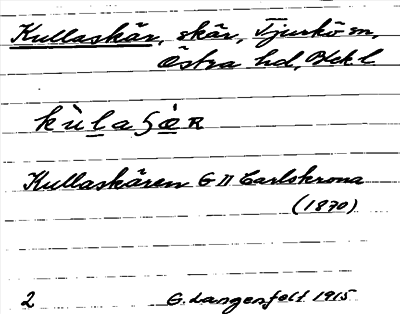 Kullaskär, skär, Tjurkö sn,
Östra hd, Blek. l
kùlaʂæ̀R
Kullaskären G II Carlskrona
(1870)
2 G. Langenfelt 1915